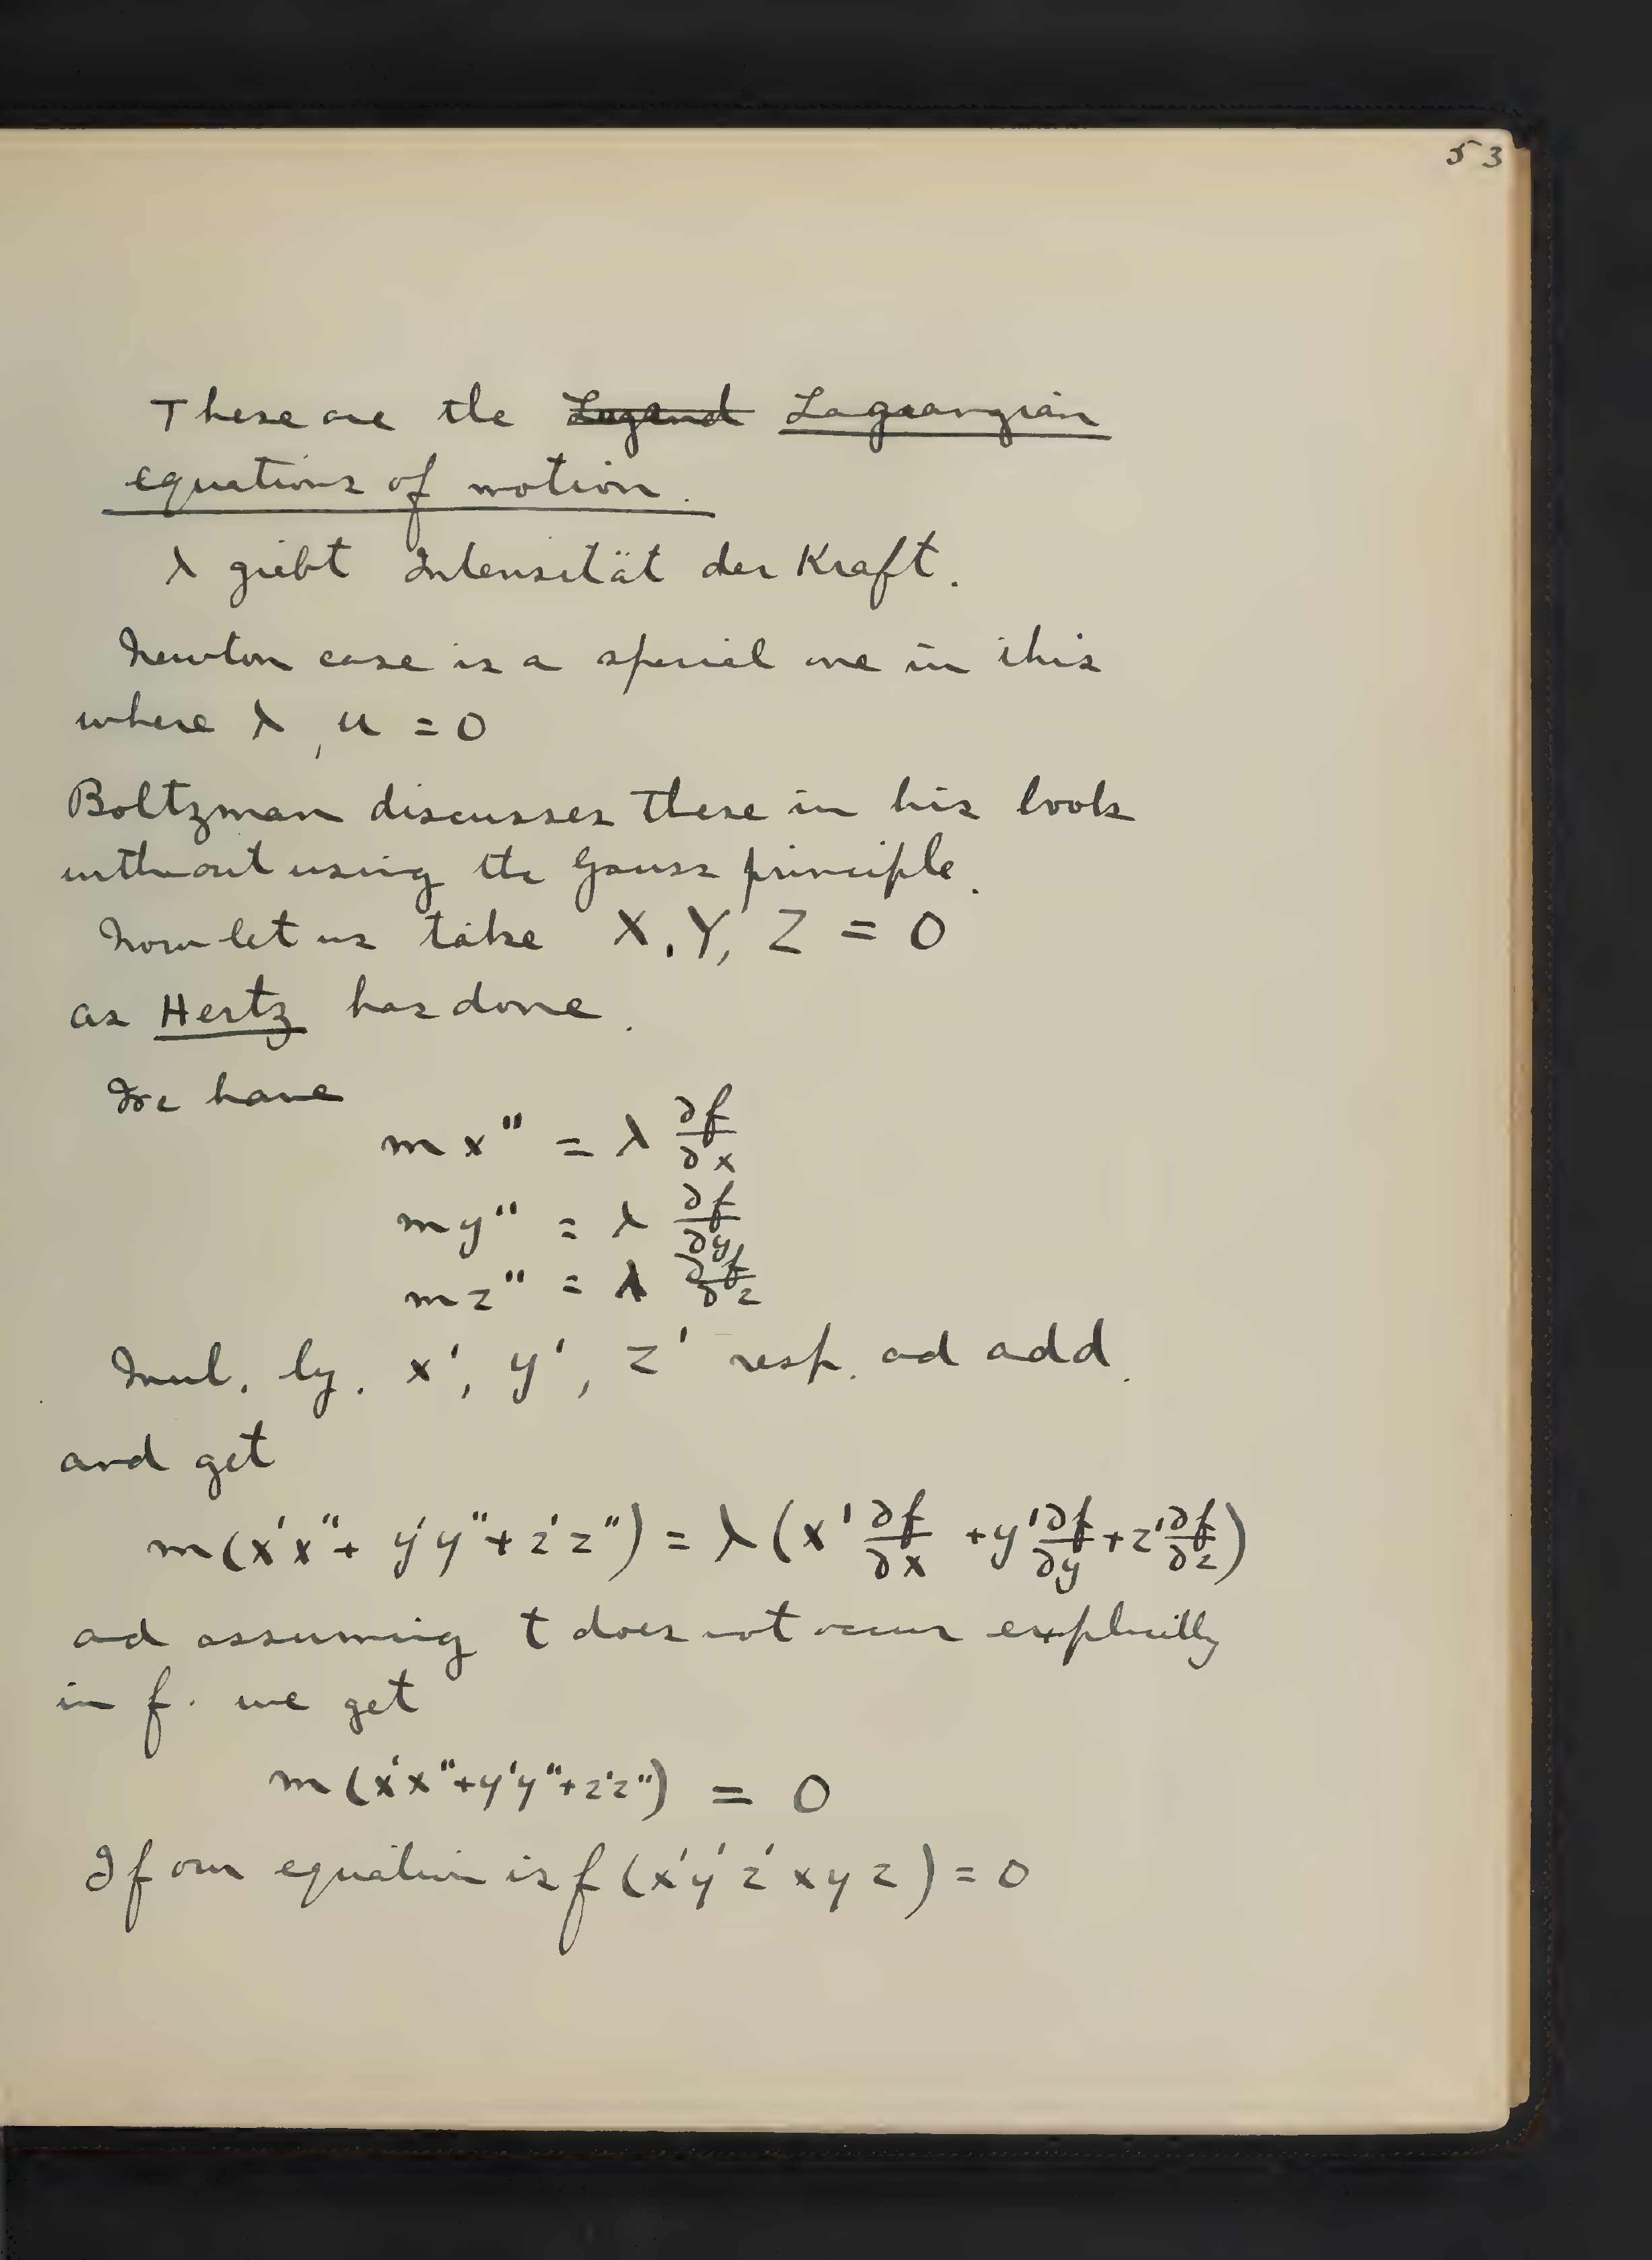 53
These are the Legend Lagrangian
equations of motion.
λ giebt Intensität der Kraft.
Newton case is a special one in this
where λ, u = 0
Boltzman discusses these in his book
without using the Gauss principle.
Now let us take X, Y, Z = 0
as Hertz has done.
We have
m x'' = λ ∂f/∂x
m y'' = λ ∂f/∂y
m z'' = λ ∂f/∂z
Mul. by. x', y', z' resp. ad add.
and get
m(x'x'' + y'y'' + z'z'') = λ(x' ∂f/∂x + y' ∂f/∂y + z' ∂f/∂z)
ad assuming t does not occur explicitly
in f. we get
m(x'x''+y'y''+z'z'') = 0
If our equation is f(x'y'z' x y z) = 0